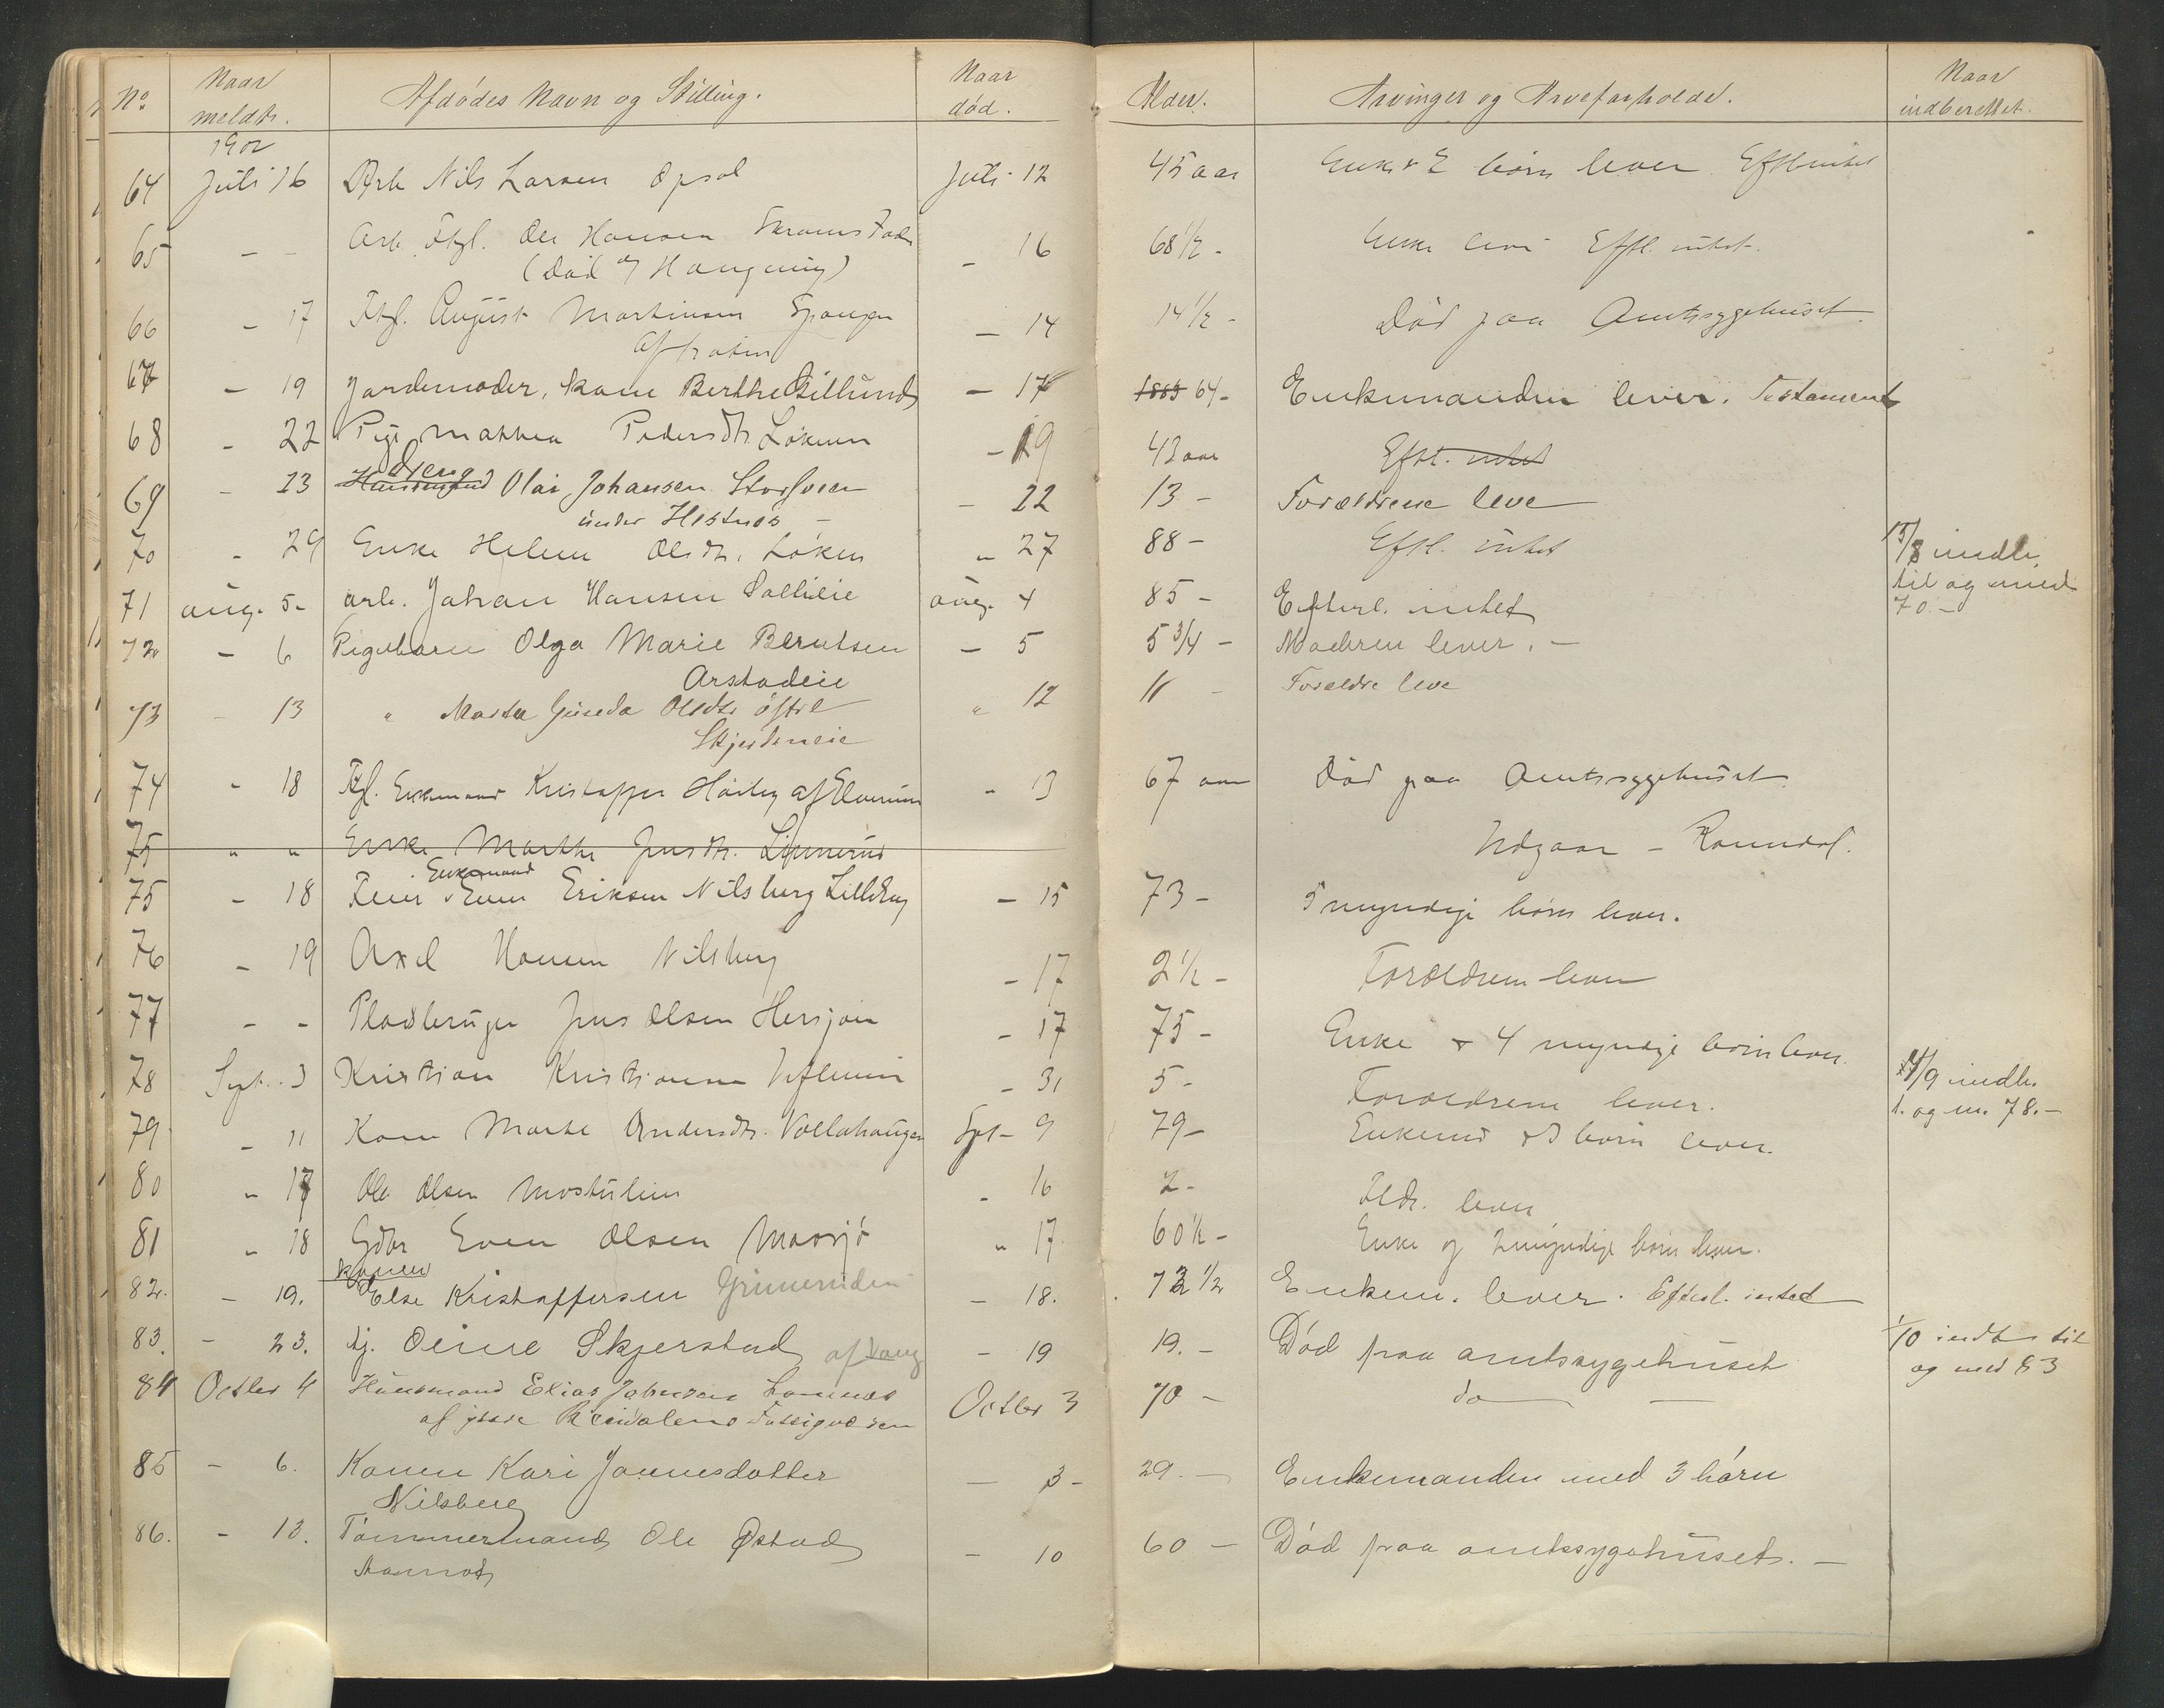 No. Naar meldt. Afdødes Navn og Stilling. Naar død. Alder. Arvinger og Arveforholde. Naar indberettet.
1902
64 Juli 16 Arb Nils Larsen Opsal Juli 12 45 aar Enke & 2 børn lever Eftl intet
65 - - Arb. Ftgl. Ole Hansen Skramstad - 16 68 1/2 - Enke lever Eftl. intet.
(Død af Hængning)
66 - 17 Ftgl. August Martinsen Spangen - 14 14 1/2 - Død paa Amtssygehuset
af
67 - 19 Jordemoder, kone Berthe - 17 1883 64- Enkemanden lever. Testament
68 - 22 Pige Mathea Pedersdt. Løkken - 19 42 aar Eftl. intet
Dreng
69 - 23 Husmand Olai Johansen - 22 13 - Forældrene leve
under Hestnæs -
70 - 29 Enke Helene Olsdt. Løken " 27 88 - Eftl. intet
15/8 indb.
til og med
70.-
71 aug. 5- arb. Johan Hansen aug. 4 85 - Efterl. intet
72 - 6 Pigebarn Olga Marie Berntsen - 5 5 3/4 - Moderen lever. -
Arstadeie
73 - 13 " Marta Olsdtr øftre " 12 11 - Forældre leve
74 " 18 Ftgl. Enkemand Kristoffer af Elverum - 13 67 aar Død paa Amtssygehuset.
75 " " Enke Marthe Jensdt. Linnerud Udgaar - Romedal.
Enkemand
75 - 18 Even Eriksen Nilsberg - 15 73 - 5 myndige børn lever.
76 - 19 Axel Hansen Nilsberg - 17 2 1/2 - Forældrene lever
77 - - Pladsbruger Jens Olsen Hersjøen - 17 75 - Enke + 4 myndige børn lever.
78 Sept. 3 Kristian Kristiansen - 31 5 - Forældrene lever.
14/9 indb.
t. og m. 78.-
79 - 11 Kone Marte Andersdt. Vollahaugen Spt- 9 79- Enkemd + 3 børn lever.
80 " 17 Ole Olsen - 16 2- Fldr. lever
81 " 18 Gdbr Even Olsen Mosjø " 17 60 1/2 - Enke og 2 myndige børn lever.
konen
82. - 19. Else Kristoffersen - 18. 72 1/2 Enkem. lever. Efterl. intet
83. - 23. tj. Oline Skjerstad af Vang - 19 19. - Død paa amtssygehuset
1/10 indb til
og med 83
84 Octbr 4 Husmand Elias Johnsen Octbr 3 70 - do -
af Fattigvæsen
85 - 6. Konen Kari Jonnesdatter - 3 - 29. - Enkemanden med 3 børn
Nilsberg
86. - 13. Tømmermand Ole Østad - 10 60 - Død paa amtssygehuset. -
Aamot